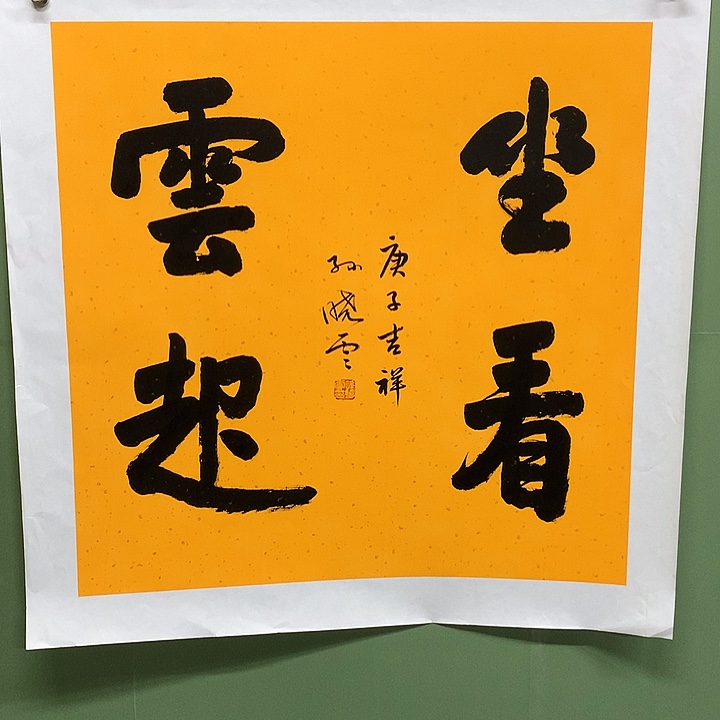 坐看
雲起
庚子吉祥
孙晓雲